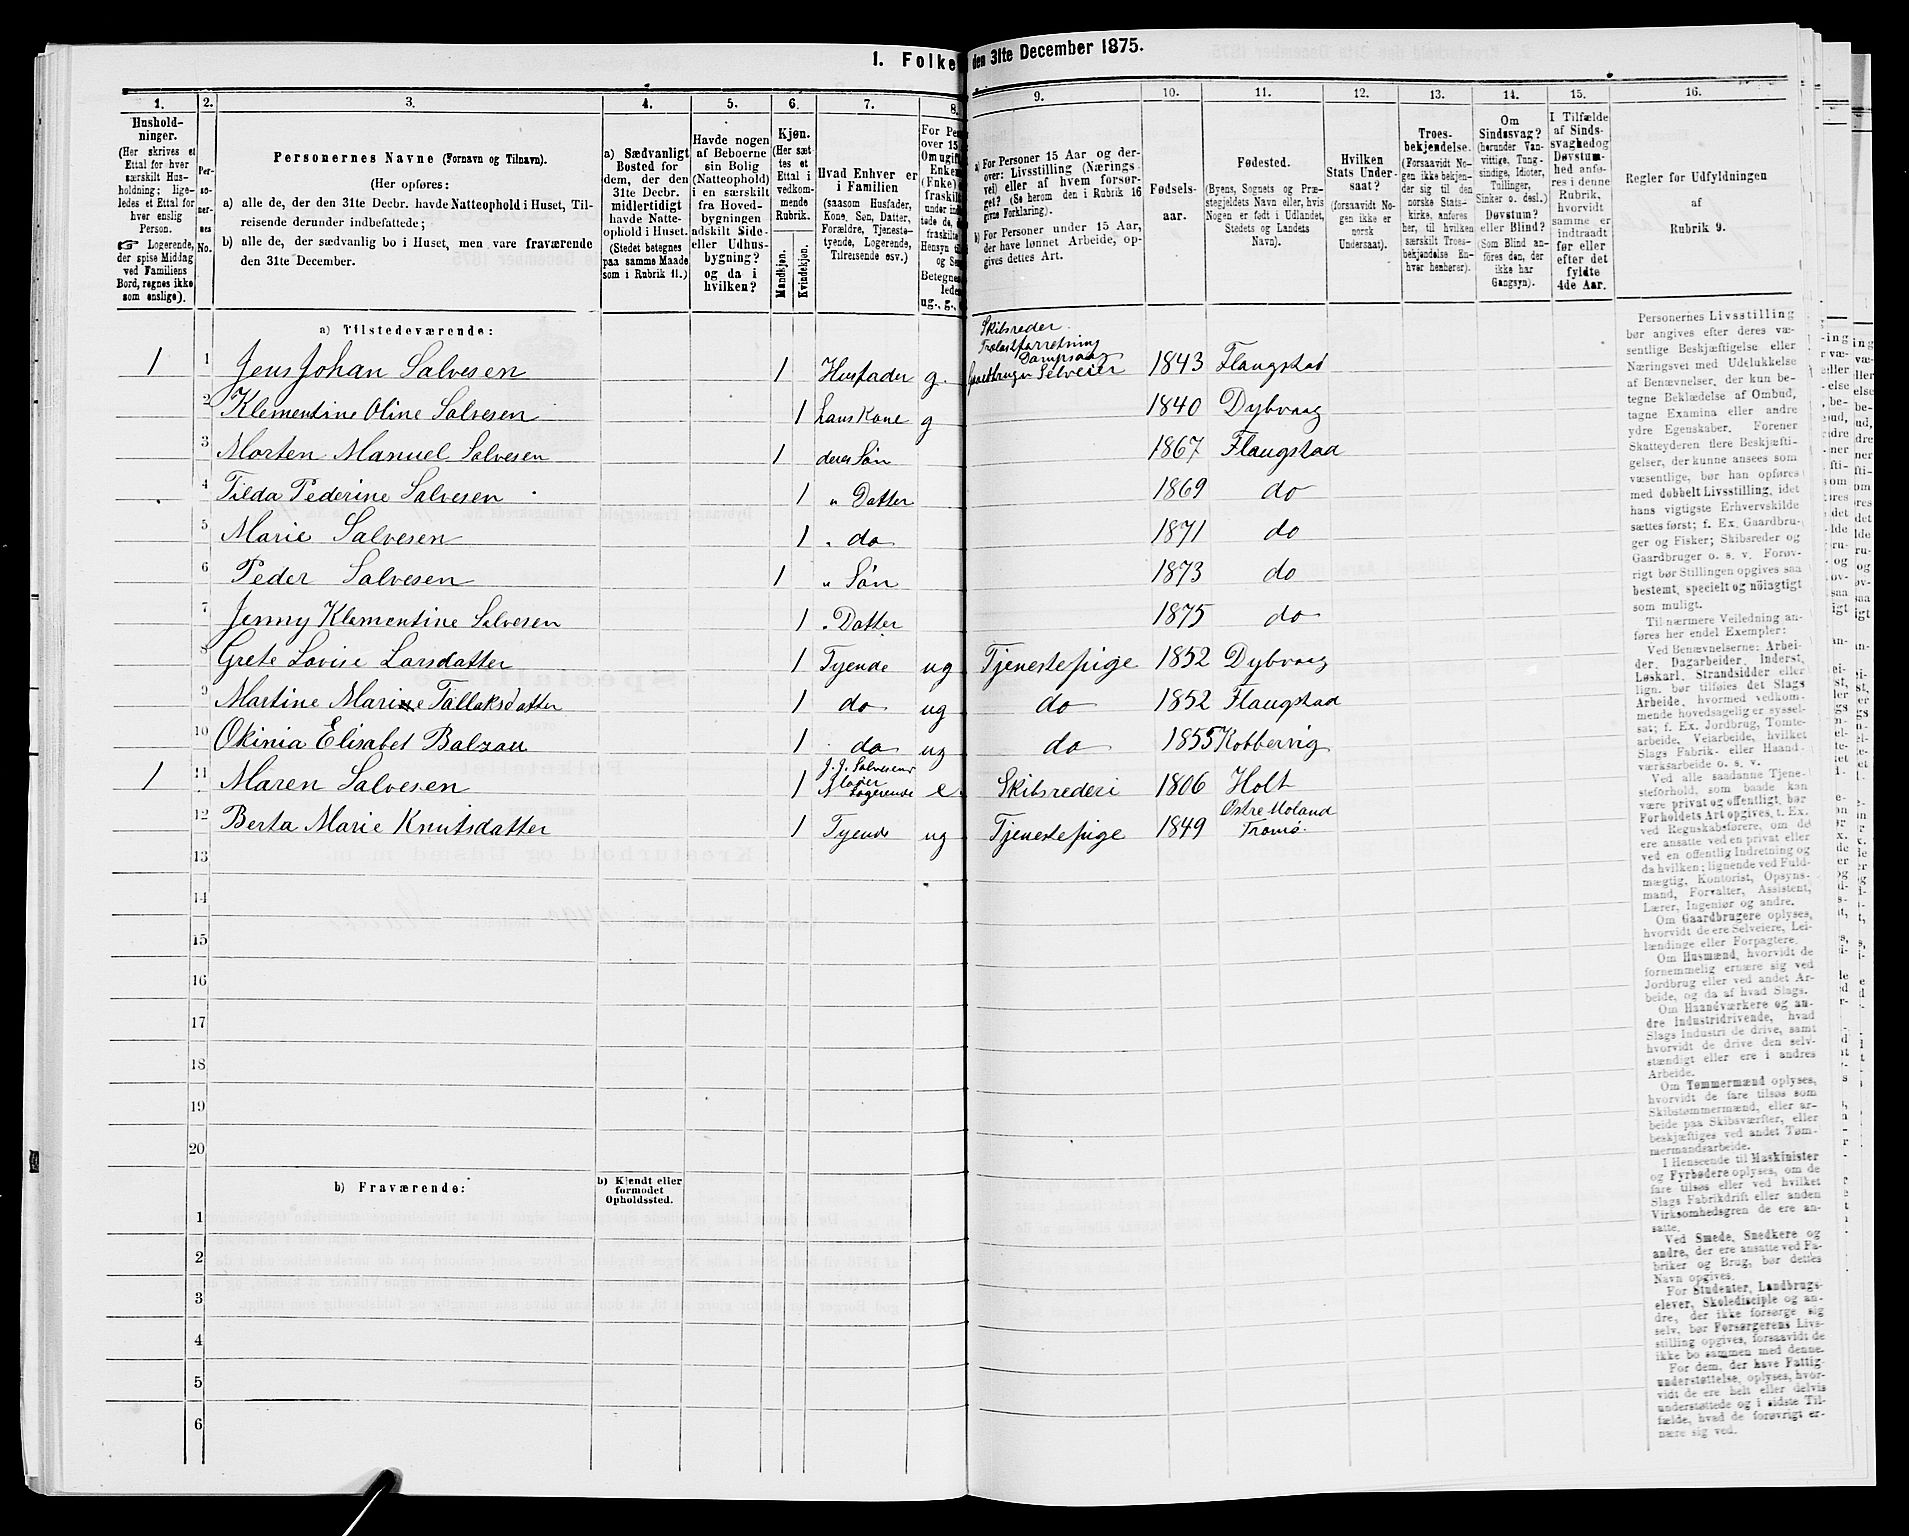 1. Folke
den 31te December 1875.
1.
Hushold-
ninger.
(Her skrives et
Ettal for hver
særskilt Hus-
holdning; lige-
ledes et Ettal for
hver enslig
Person.
☞ Logerende,
der spise Middag
ved Familiens
Bord, regnes ikke
som enslige).
2.
Per-
so-
ner-
nes
No.
3.
Personernes Navne (Fornavn og Tilnavn).
(Her opføres:
a) alle de, der den 31te Decbr. havde Natteophold i Huset, Til-
reisende derunder indbefattede;
b) alle de, der sædvanlig bo i Huset, men vare fraværende
den 31te December.
4.
a) Sædvanligt
Bosted for
dem, der den
31te Decbr.
midlertidigt
havde Natte-
ophold i Huset.
(Stedet betegnes
paa samme Maade
som i Rubrik 11.)
5.
Havde nogen
af Beboerne
sin Bolig
(Natteophold)
i en særskilt
fra Hoved-
bygningen
adskilt Side-
eller Udhus-
bygning?
og da i
hvilken?
6.
Kjøn.
(Her sæt-
tes et
Ettal i
vedkom-
mende
Rubrik.
Mandkjøn.
Kvindekjøn.
7.
Hvad Enhver er
i Familien
(saasom Husfader,
Kone, Søn, Datter,
Forældre, Tjeneste-
tyende, Logerende,
Tilreisende osv.)
8.
For Pe
over 15
Om ugift
Enke
(Enke)
fraskilt
9.
a) For Personer 15 Aar og der-
over: Livsstilling (Nærings-
vei) eller af hvem forsør-
get? (Se herom den i Rubrik 16
givne Forklaring).
b) For Personer under 15 Aar,
der have lønnet Arbeide, op-
gives dettes Art.
10.
Fødsels-
aar.
11.
Fødested.
(Byens, Sognets og Præ-
stegjeldets Navn eller, hvis
Nogen er født i Udlandet,
Stedets og Landets
Navn).
12.
Hvilken
Stats Under-
saat?
(forsaavidt No-
gen ikke er
norsk
Undersaat).
13.
Troes-
bekjendelse.
(Forsaavidt No-
gen ikke bekjen-
der sig til den
norske Stats-
kirke, anføres
her, til hvilken
særskilt Troes-
bekjendelse En-
hver henhører).
14.
Om
Sindssvag?
(herunder Van-
vittige, Tung-
sindige, Idioter,
Tullinger,
Sinker o. desl.)
Døvstum?
eller Blind?
(Som Blind an-
føres den, der
ikke har
Gangsyn).
15.
I Tilfælde
af Sinds-
svaghed og
Døvstum-
hed anfø-
res i denne
Rubrik,
hvorvidt
samme er
indtraadt
før eller
efter det
fyldte
4de Aar.
16.
Regler for Udfyldningen
af
Rubrik 9.
a) Tilstedeværende:
Skibsreder
Trælastforretning
Dampsag
1 1 Jens Johan Salvesen 1 Husfader g. Gaardbruger Selveier 1843 Flaugstad
2 Klementine Oline Salvesen 1 hans Kone g 1840 Dybvaag
3 Morten Manuel Salvesen 1 deres Søn 1867 Flaugstad
4 Tilda Pederine Salvesen 1 " Datter 1869 do
5 Marie Salvesen 1 " do 1871 do
6 Peder Salvesen 1 " Søn 1873 do
7 Jenny Klementine Salvesen 1 " Datter 1875 do
8 Grete Lovise Larsdatter 1 Tyende ug Tjenestepige 1852 Dybvaag
9 Martine Marine Tallaksdatter 1 do ug do 1852 Flaugstad
10 Okinia Elisabet Balzau 1 do ug do 1855 Kobbervig
J. J. Salvesens
Moder
1 11 Maren Salvesen 1 Logerende e. Skibsrederi 1806 Holt
Østre Moland
12 Berta Marie Knutsdatter 1 Tyende ug Tjenestepige 1849 Tromø.
13
14
15
16
17
18
19
20
b) Fraværende:
b) Kjendt eller
formodet
Opholdssted.
1
2
3
4
5
6
Personernes Livsstilling
bør angives efter deres væ-
sentlige Beskjæftigelse eller
Næringsvei med Udelukkelse
af Benævnelser, der kun be-
tegne Beklædelse af Ombud,
tagne Examina eller andre
ydre Egenskaber. Forener
Skatteyderen flere Beskjæfti-
gelser, der kunne ansees som
væsentlige, bør han opføres
med dobbelt Livsstilling, idet
hans vigtigste Erhvervskilde
sættes først; f. Ex. Gaardbru-
ger og Fisker; Skibsreder og
Gaardbruger o. s. v. Forøv-
rigt bør Stillingen opgives saa
bestemt, specielt og nöiagtigt
som muligt.
Til nærmere Veiledning an-
føres her endel Exempler:
Ved Benævnelserne: Arbei-
der, Dagarbeider, Inderst,
Løskarl, Strandsidder eller
lign. bør tilføies det Slags
Arbeide, hvormed vedkom-
mende hovedsagelig er syssel-
sat; f. Ex. Jordbrug, Tomte-
arbeide, Veiarbeide, hvilket
Slags Fabrik- eller Haand-
værksarbeide o. s. v.
Ved alle saadanne Tjene-
steforhold, som baade kan
være privat og offentligt, bør
Forholdets Art opgives, t. Ex.
ved Regnskabsførere, om de
ere ansatte ved en privat eller
ved en offentlig Indretning og
da hvilken; lignende ved Fuld-
mægtig, Kontorist, Opsyns-
mand, Forvalter, Assistent,
Lærer, Ingeniør og andre.
Om Gaardbrugere oplyses,
hvorvidt de ere Selveiere, Lei-
lændinge eller Forpagtere.
Om Husmænd, hvorvidt de
fornemmelig ernære sig ved
Jordbrug eller ved andet Ar-
beide, og da af hvad Slags.
Om Haandværkere og an-
dre Industridrivende, hvad
Slags Industri de drive, samt
hvorvidt de drive den selv-
stændigt eller ere i andres
Arbeide.
Om Tømmermænd oplyses,
hvorvidt de fare tilsøs som
Skibstømmermænd, eller ar-
beide paa Skibsværfter, eller
beskjæftiges ved andet Tøm-
mermandsarbeide.
I Henseende til Maskinister
og Fyrbødere oplyses, om de
fare tilsøs eller ved hvilket
Slags Fabrikdrift eller anden
Virksomhedsgren de ere an-
satte.
Ved Smede, Snedkere og
andre, der ere ansatte ved Fa-
briker og Brug, bør dettes
Navn opgives.
For Studenter, Landbrugs-
elever, Skoledisciple og an-
dre, der ikke forsørge sig
selv, bør Forsørgerens Livs-
stilling opgives, forsaavidt de
ikke bo sammen med denne.
For dem, der have Fattig-
understøttelse, oplyses, hvor-
vidt de ere helt eller delvis
understøttede og i sidste Til-
fælde, hvad de forøvrigt er-
nære sig ved.